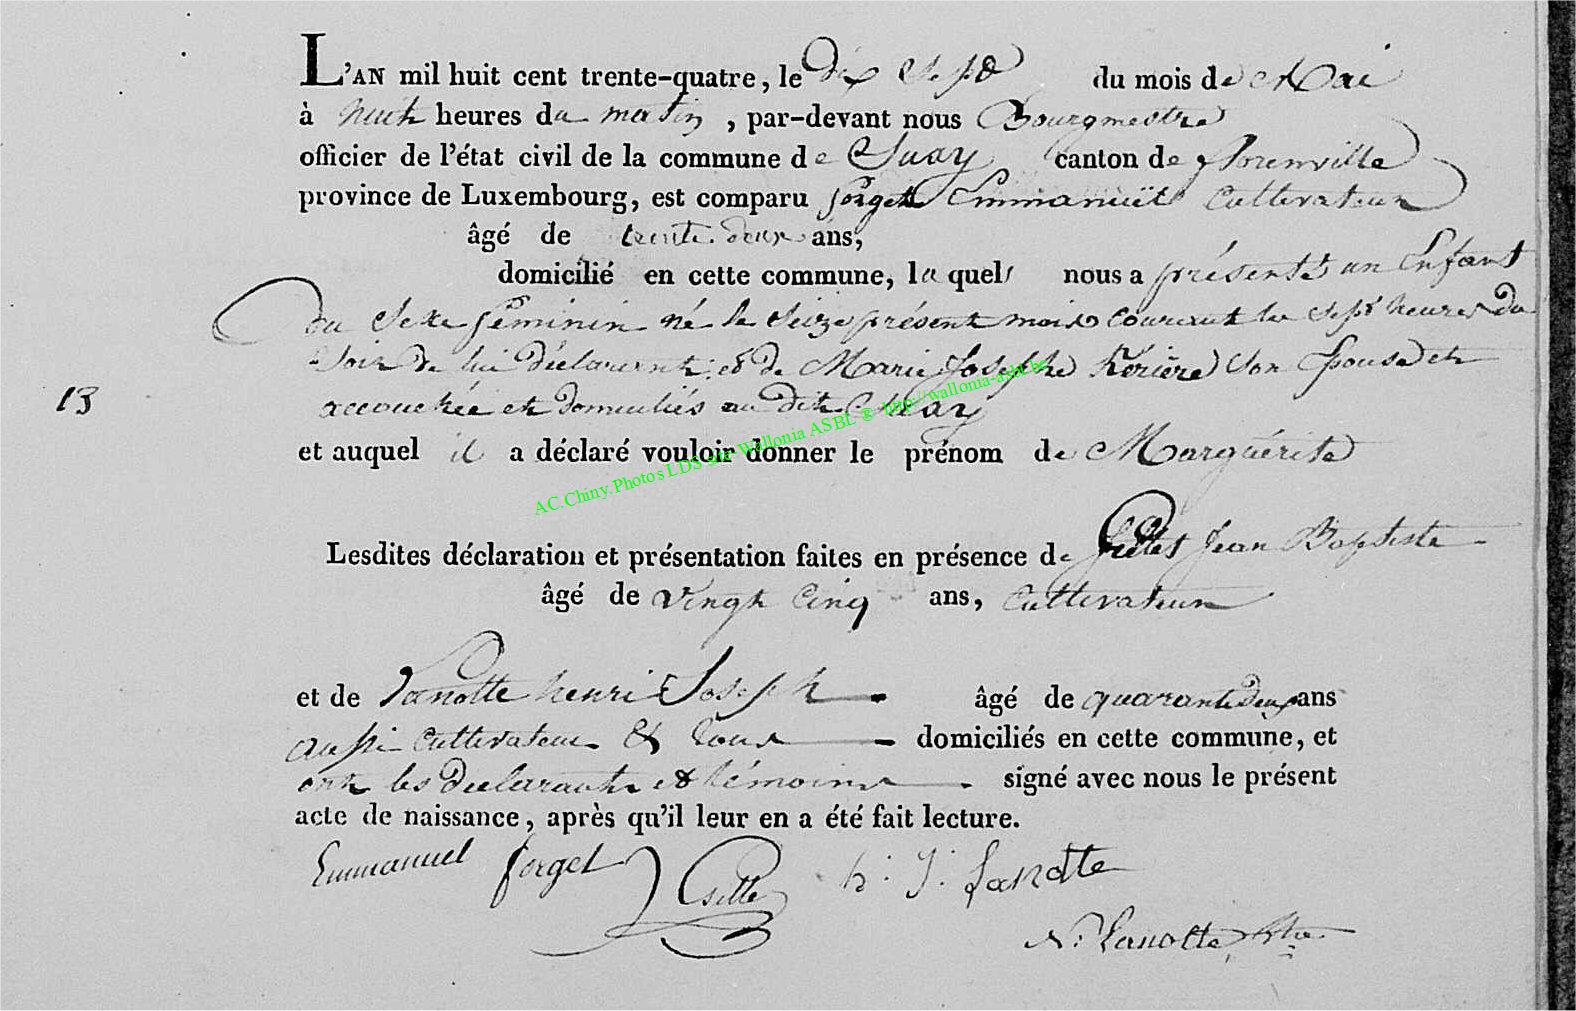 L'AN mil huit cent trente-quatre, le dix Sept du mois de Mai
à huit heures du matin, par-devant nous Bourgmestre
officier de l'état civil de la commune de Suxy canton de florenville
province de Luxembourg, est comparu forget Emmanuël Cultivateur
âgé de trente deux ans,
domicilié en cette commune, la quel nous a présenté un Enfant
du Sexe féminin né le Seize présent mois courant les sept heures du
Soir de lui déclarant et de Marie Josephe son Epouse et
13
accouchée et domiciliés au dit Suxy
et auquel il a déclaré vouloir donner le prénom de Marguérite
AC.Chiny.Photos LDS site-Wallonia ASBL @ http://wallonia-asbl.be
Lesdites déclaration et présentation faites en présence de Jean Baptiste
âgé de vingt Cinq ans, Cultivateur
et de Lanotte henri Joseph âgé de quarante deux ans
aussi Cultivateur & tous domiciliés en cette commune, et
ont les déclarant et témoins signé avec nous le présent
acte de naissance, après qu'il leur en a été fait lecture.
Emmanuel forget h. J. Lanotte
N. Lanotte